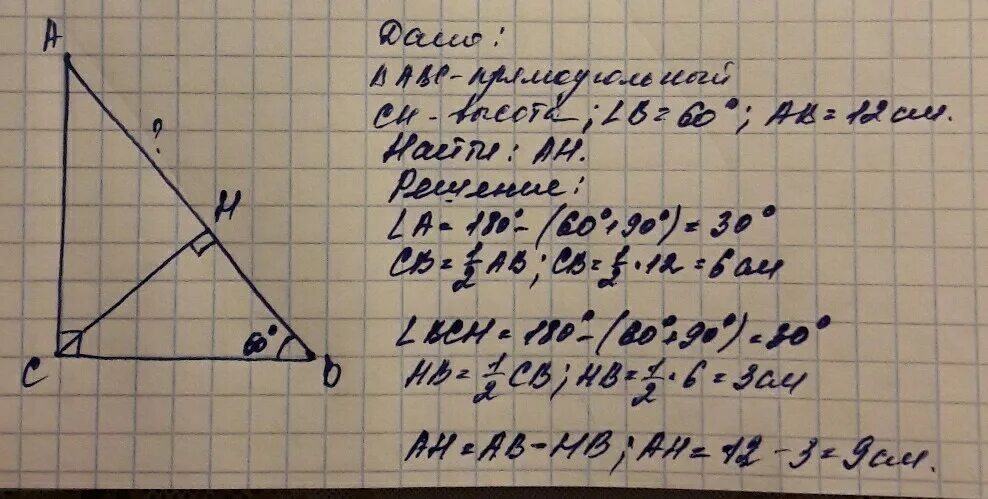 A
?
H
60°
C
B
Дано:
ΔABC - прямоугольный
CH - высота; ∠B = 60°; AB = 12 см.
Найти: AH.
Решение:
∠A = 180° - (60° + 90°) = 30°
CB = 1/2 AB; CB = 1/2 · 12 = 6 см
∠BCH = 180° - (60° + 90°) = 30°
HB = 1/2 CB; HB = 1/2 · 6 = 3 см
AH = AB - HB; AH = 12 - 3 = 9 см.